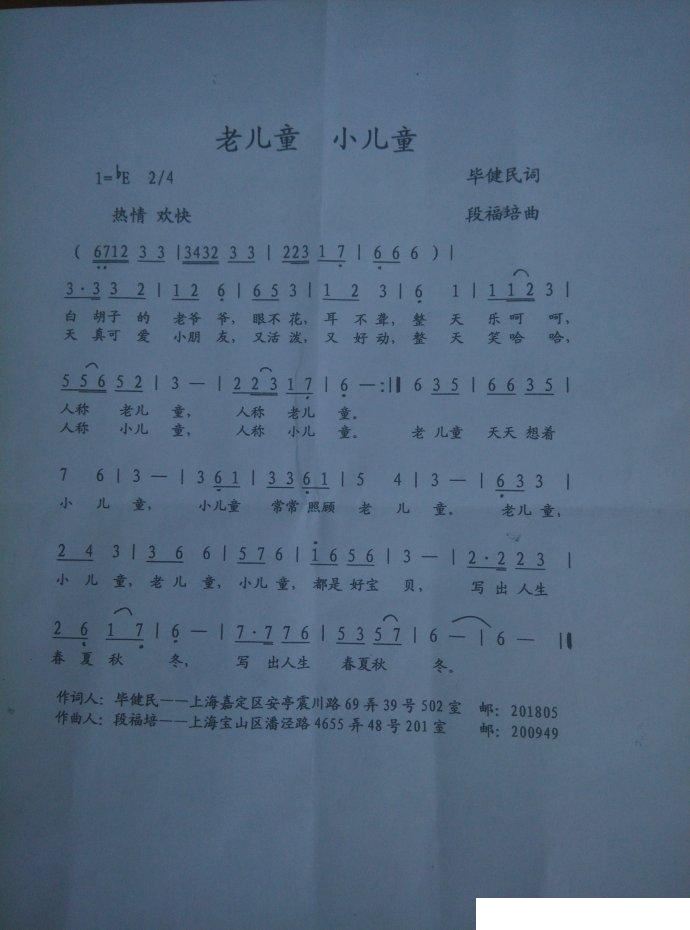 老儿童 小儿童
1=♭E 2/4 毕健民词
热情 欢快 段福培曲
( 6712 3 3 | 3432 3 3 | 223 1 7 | 6 6 6 ) |
3·3 3 2 | 1 2 6 | 6 5 3 | 1 2 3 | 6 1 | 1 1 2 3 |
白 胡子 的 老爷 爷, 眼不 花, 耳 不 聋, 整 天 乐 呵 呵,
天 真可 爱 小朋 友, 又活 泼, 又 好 动, 整 天 笑 哈 哈,
5 5 6 5 2 | 3 — | 2 2 3 1 7 | 6 — :|| 6 3 5 | 6 6 3 5 |
人称 老儿 童, 人称 老儿 童。
人称 小儿 童, 人称 小儿 童。 老 儿童 天天 想着
7 6 | 3 — | 3 6 1 | 3 3 6 1 | 5 4 | 3 — | 6 3 3 |
小 儿 童, 小儿童 常常 照顾 老 儿 童。 老儿 童,
2 4 3 | 3 6 6 | 5 7 6 | 1 6 5 6 | 3 — | 2·2 2 3 |
小 儿 童, 老 儿 童, 小儿 童, 都是 好宝 贝, 写 出 人生
2 6 1 7 | 6 — | 7·7 7 6 | 5 3 5 7 | 6 — | 6 — ||
春 夏 秋 冬, 写 出人生 春夏秋 冬。
作词人: 毕健民——上海嘉定区安亭震川路 69 弄 39 号 502 室 邮: 201805
作曲人: 段福培——上海宝山区潘泾路 4655 弄 48 号 201 室 邮: 200949